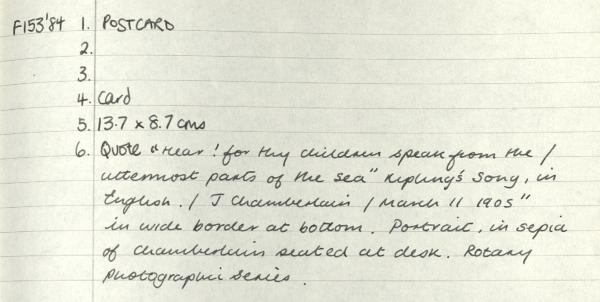 F153'84 1. POSTCARD
2.
3.
4. Card
5. 13.7 x 8.7 cms
6. Quote "Hear! for thy children speak from the /
uttermost parts of the sea" Kipling's Song, in
English. / J Chamberlain / March 11 1905"
in wide border at bottom. Portrait, in sepia
of Chamberlain seated at desk. Rotary
Photographic Series.